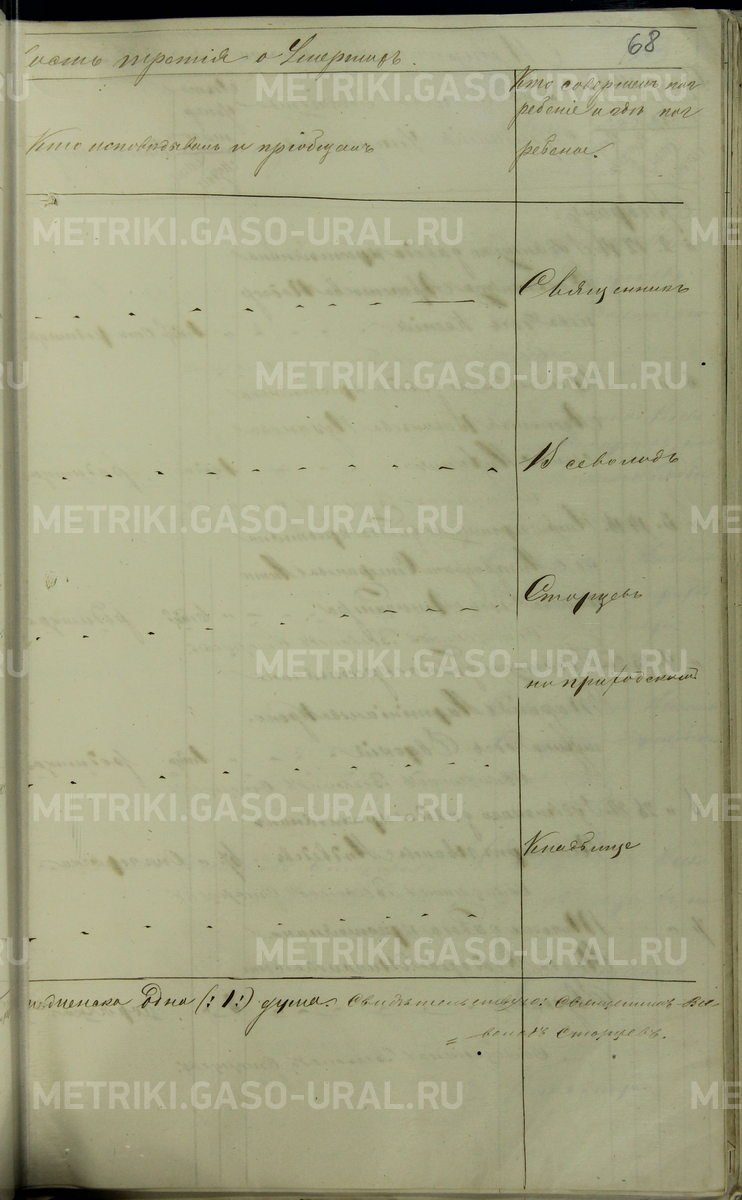 68
Часть третія о Умершихъ.
Кто исповѣдывалъ и пріобщалъ
Кто совершалъ пог
ребеніе и гдѣ пог
ребены.
Священникъ
Всеволодъ
Старцевъ
на приходскомъ
Кладбище
одна (: 1 :) душа. Свидѣтельствую: Священникъ Все
=володъ Старцевъ.
METRIKI.GASO-URAL.RU